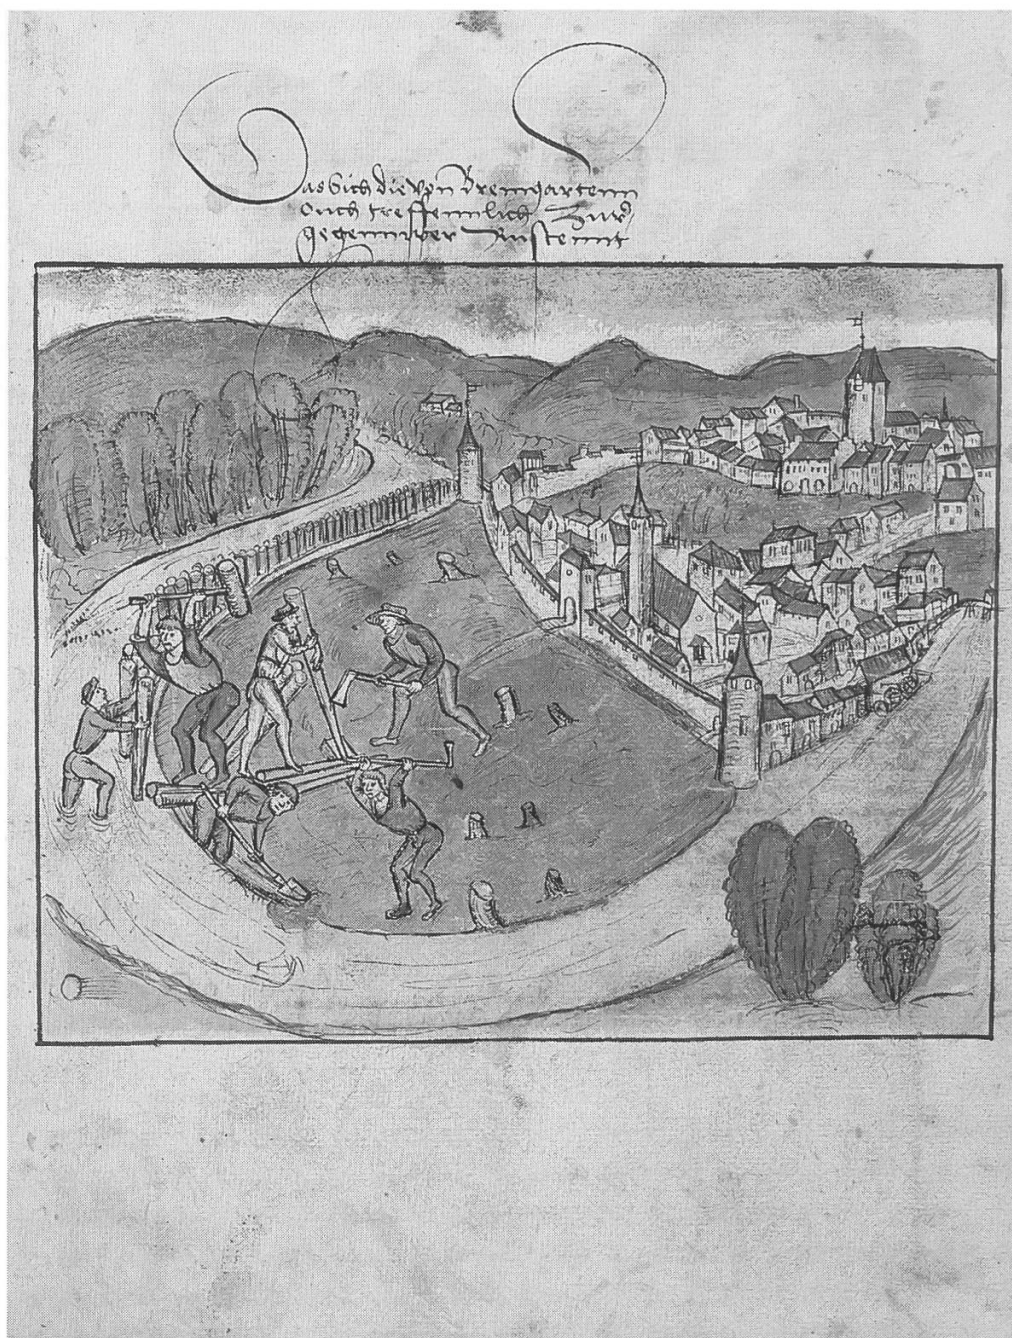 Das Sich die von Bremgartenn
Ouch treffennlich Zur
gegennwer Rustennt